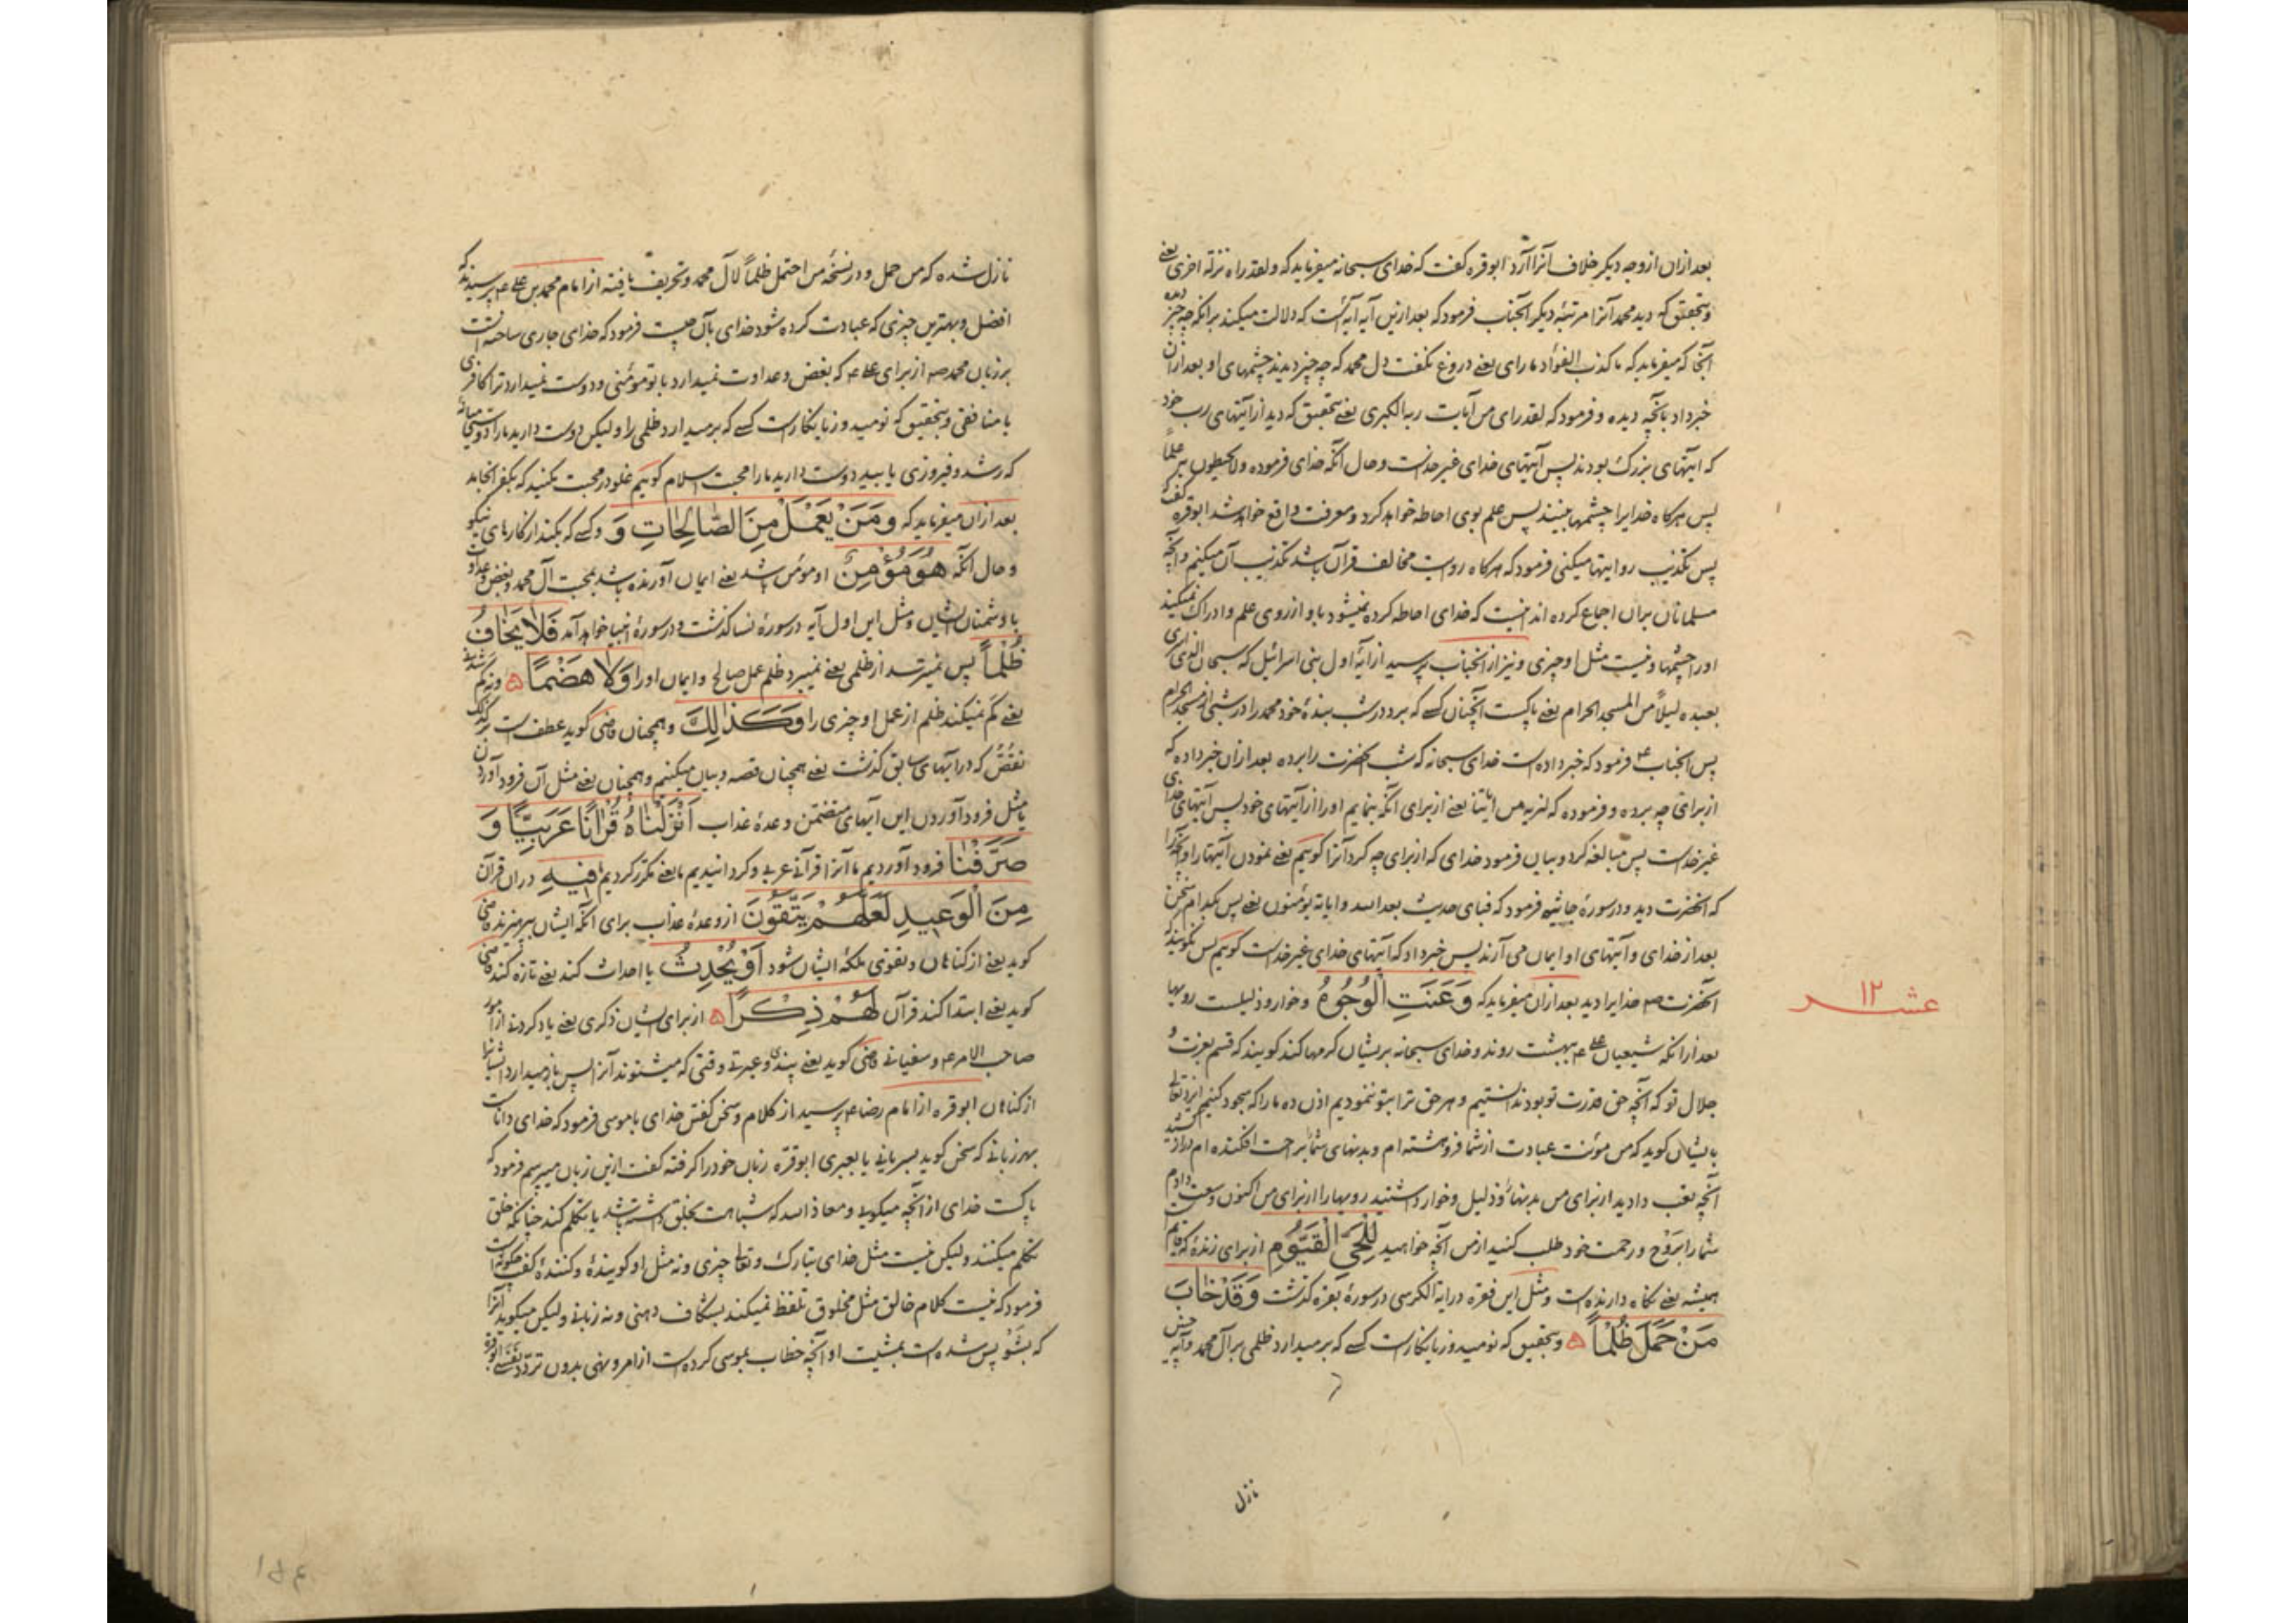 بعد ازان از وجه دیگر خلاف آنرا آرد ابوقره گفت که خدای سبحانه میفرماید که ولقد راه نزلة اخری یعنی
وبتحقیق که دید محمد آنرا مرتبهٔ دیگر آنجناب فرمود که بعد ازین آیه آیهٔ است که دلالت میکند بر آنکه چه چیز دیده
آنجا که میفرماید که ما کذب الفؤاد ما رای یعنی دروغ نگفت دل محمد که چه چیز دیدند چشمهای او بعد ازان
خبر داد بآنچه دیده و فرمود که لقد رای من آیات ربه الکبری یعنی بتحقیق که دید از آیتهای رب خود
که آیتهای بزرگ بودند پس آیتهای خدای غیر خداست وحال آنکه خدای فرموده ولا یحیطون به علماً
پس هرگاه خدایرا چشمها ببینند پس علم بوی احاطه خواهد کرد و معرفت واقع خواهد شد ابوقره گفت
پس تکذیب روایتها میکنی فرمود که هرگاه روایت مخالف قرآن باشد تکذیب آن میکنم وآنچه
مسلمانان بران اجماع کرده اند اینست که خدای احاطه کرده نمیشود باو از روی علم و ادراک نمیکنند
اورا چشمها ونیست مثل او چیزی ونیز از آنجناب پرسید از آیهٔ اول بنی اسرائیل که سبحان الذی اسری
بعبده لیلاً من المسجد الحرام یعنی پاکست آنچنان کسی که برد در شب بندهٔ خود محمد را در شبی از مسجد الحرام
پس آنجناب ع فرمود که خبر داده است خدای سبحانه که شب آنحضرت را برده بعد ازان خبر داده که
از برای چه برده و فرموده که لنریه من ایاتنا یعنی از برای آنکه بنمایم اورا از آیتهای خود پس آیتهای خدای
غیر خداست پس مبالغه کرد و بیان فرمود خدای که از برای چه کرد آنرا گوییم یعنی نمودن آیتها را وآنچه را
که آنحضرت دید ودر سورهٔ جاثیه فرمود که فبای حدیث بعد الله وایاته یؤمنون یعنی پس بکدام سخن
بعد از خدای وآیتهای او ایمان می آرند پس خبر داد که آیتهای خدای غیر خداست گوییم پس نگویند که
آنحضرت ص خدایرا دید بعد ازان میفرماید که وَعَنَتِ الْوُجُوهُ وخوار وذلیلست رویها
عشر ١٢
بعد ازانکه شیعیان علی ع بهشت روند وخدای سبحانه بریشان کرمها کند گویند که قسم بعزت و
جلال تو که آنچه حق قدرت تو بود ندانستیم وهر حق ترا بتو ننمودیم اذن ده مارا که سجود کنیم ایزد تعالی
بایشان گوید که من مؤنت عبادت از شما فروهشته ام وبدنهای شما براحت افکنده ام
آنچه تعب دادید از برای من بدنها و ذلیل وخوار داشتید رویها را از برای من اکنون وسعت دادم
شما را بروح ورحمت خود طلب کنید از من آنچه خواهید لِلْحَيِّ الْقَيُّومِ از برای زندهٔ که قایم است
همیشه یعنی نگاه دارنده است ومثل این فقره در آیة الکرسی در سورهٔ بقره گذشت وَقَدْ خَابَ
مَنْ حَمَلَ ظُلْماً ۵ وبتحقیق که نومید وزیانکار است کسی که برمیدارد ظلمی بر آل محمد وآیه چنین
نازل
نازل شده که من حمل ودر نسخهٔ من احتمل ظلماً لآل محمد وتحریف یافته از امام محمد بن علی ع پرسیدند که
افضل وبهترین چیزی که عبادت کرده شود خدای بآن چیست فرمود که خدای جاری ساخته است
بر زبان محمد ص از برای علی ع که بغض وعداوت نمیدارد با تو مؤمنی ودوست نمیدارد ترا کافری
یا منافقی وبتحقیق که نومید وزیانکار است کسی که برمیدارد ظلمی را ولیکن دوست دارید مارا
که رشد وفیروزی یابید دوست دارید مارا محبت اسلام گوییم غلو در محبت نکنید که بکفر انجامد
بعد ازان میفرماید که وَمَنْ يَعْمَلْ مِنَ الصَّالِحَاتِ وَ وکسی که بکند از کارهای نیکو
وحال آنکه هُوَ مُؤْمِنٌ او مؤمن باشد یعنی ایمان آورنده باشد بمحبت آل محمد وبغض وعداوت
با دشمنان ایشان ومثل این اول آیه در سورهٔ نسا گذشت ودر سورهٔ انبیا خواهد آمد فَلَا يَخَافُ
ظُلْماً پس نمیترسد از ظلمی یعنی نمیبرد ظلم عمل صالح وایمان اورا وَلَا هَضْمًا ۵ ونه کم شدنی
یعنی کم نمیکند ظلم از عمل او چیزی را وَكَذَلِكَ وهمچنان قاضی گوید عطفست بر کذلک
نقصّ که در آیتهای سابق گذشت یعنی همچنان قصه وبیان میکنیم وهمچنان یعنی مثل آن فرود آوردن
یا مثل فرود آوردن این آیهای متضمن وعدهٔ عذاب اَنْزَلْنَاهُ قُرْآنًا عَرَبِيًّا وَ
صَرَّفْنَا فرود آوردیم ما آنرا قرآنی عربی وگردانیدیم ما یعنی مکرر کردیم فِيهِ دران قرآن
مِنَ الْوَعِيدِ لَعَلَّهُمْ يَتَّقُونَ از وعدهٔ عذاب برای آنکه ایشان بپرهیزند قاضی
گوید یعنی از گناهان وتقوی ملکهٔ ایشان شود اَوْ يُحْدِثُ یا احداث کند یعنی تازه کند قاضی
گوید یعنی ابتدا کند قرآن لَهُمْ ذِكْرًا ۵ از برای ایشان ذکری یعنی یاد کردنی از امور
صاحب الامر ع وسفیانی قاضی گوید یعنی پندی وعبرتی وقتی که میشنوند آنرا پس باز میدارد ایشانرا
از گناهان ابوقره از امام رضا ع پرسید از کلام وسخن گفتن خدای با موسی فرمود که خدای داناست
بهر زبانی که سخن گوید بسریانی یا بعبری ابوقرّه زبان خود را گرفته گفت ازین زبان میپرسم فرمود که
پاکست خدای از آنچه میگویی ومعاذ الله که شباهت بخلق داشته باشد یا تکلم کند چنانکه خلق
تکلم میکنند ولیکن نیست مثل خدای تبارک وتعالی چیزی ونه مثل او گوینده وکننده گفت چگونه است
فرمود که نیست کلام خالق مثل مخلوق تلفظ نمیکند بشکاف دهنی ونه زبانی ولیکن میگوید آنرا
که بشو پس شده است بمشیت او آنچه خطاب بموسی کرده است از امر ونهی بدون تردد نفسی ابوقره